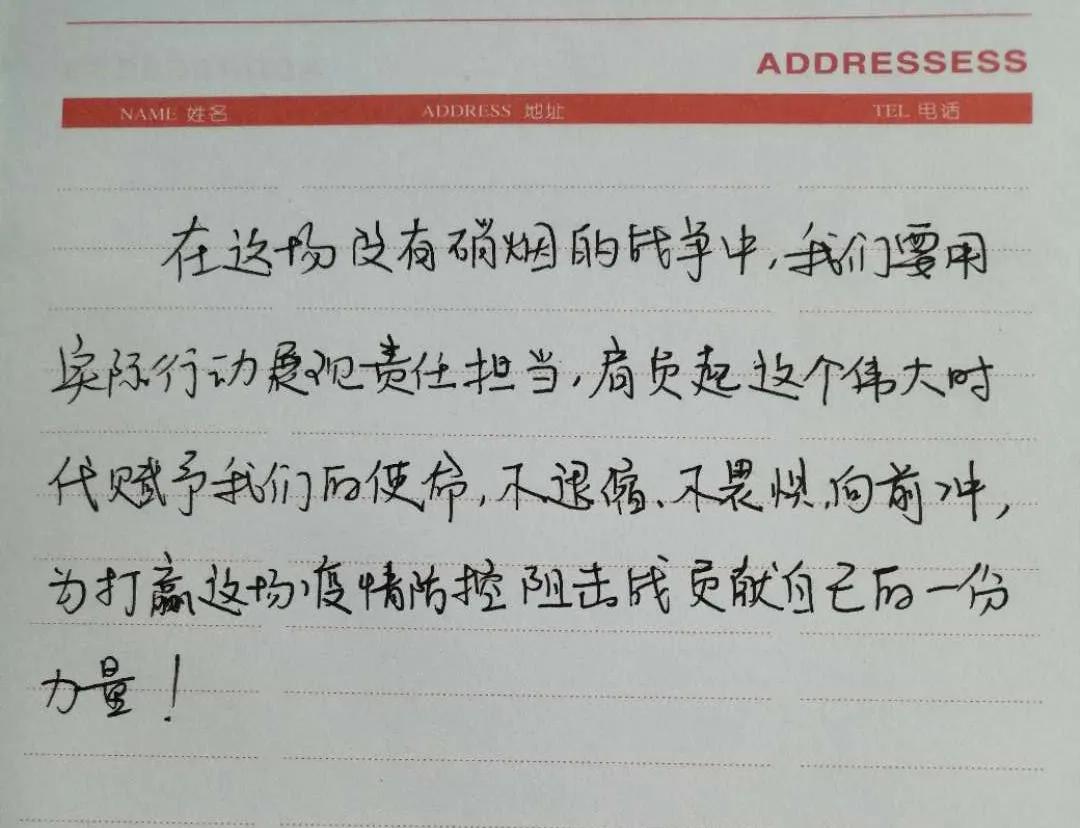 ADDRESSESS
NAME 姓名 ADDRESS 地址 TEL 电话
在这场没有硝烟的战争中,我们要用
实际行动展现责任担当,肩负起这个伟大时
代赋予我们的使命,不退缩、不畏惧,向前冲,
为打赢这场疫情防控阻击战贡献自己的一份
力量!